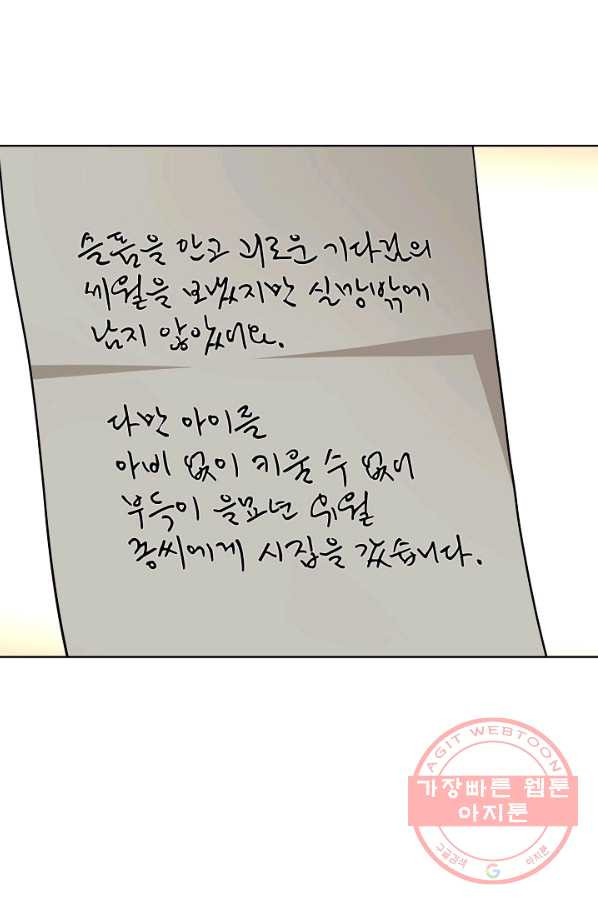 슬픔을 안고 괴로운 기다림의
세월을 보냈지만 실망밖에
남지 않았어요.
다만 아이를
아비 없이 키울 수 없어
부득이 을묘년 유월
종씨에게 시집을 갔습니다.
AGIT WEBTOON
가장빠른 웹툰
아지툰
구글검색
G
아지툰